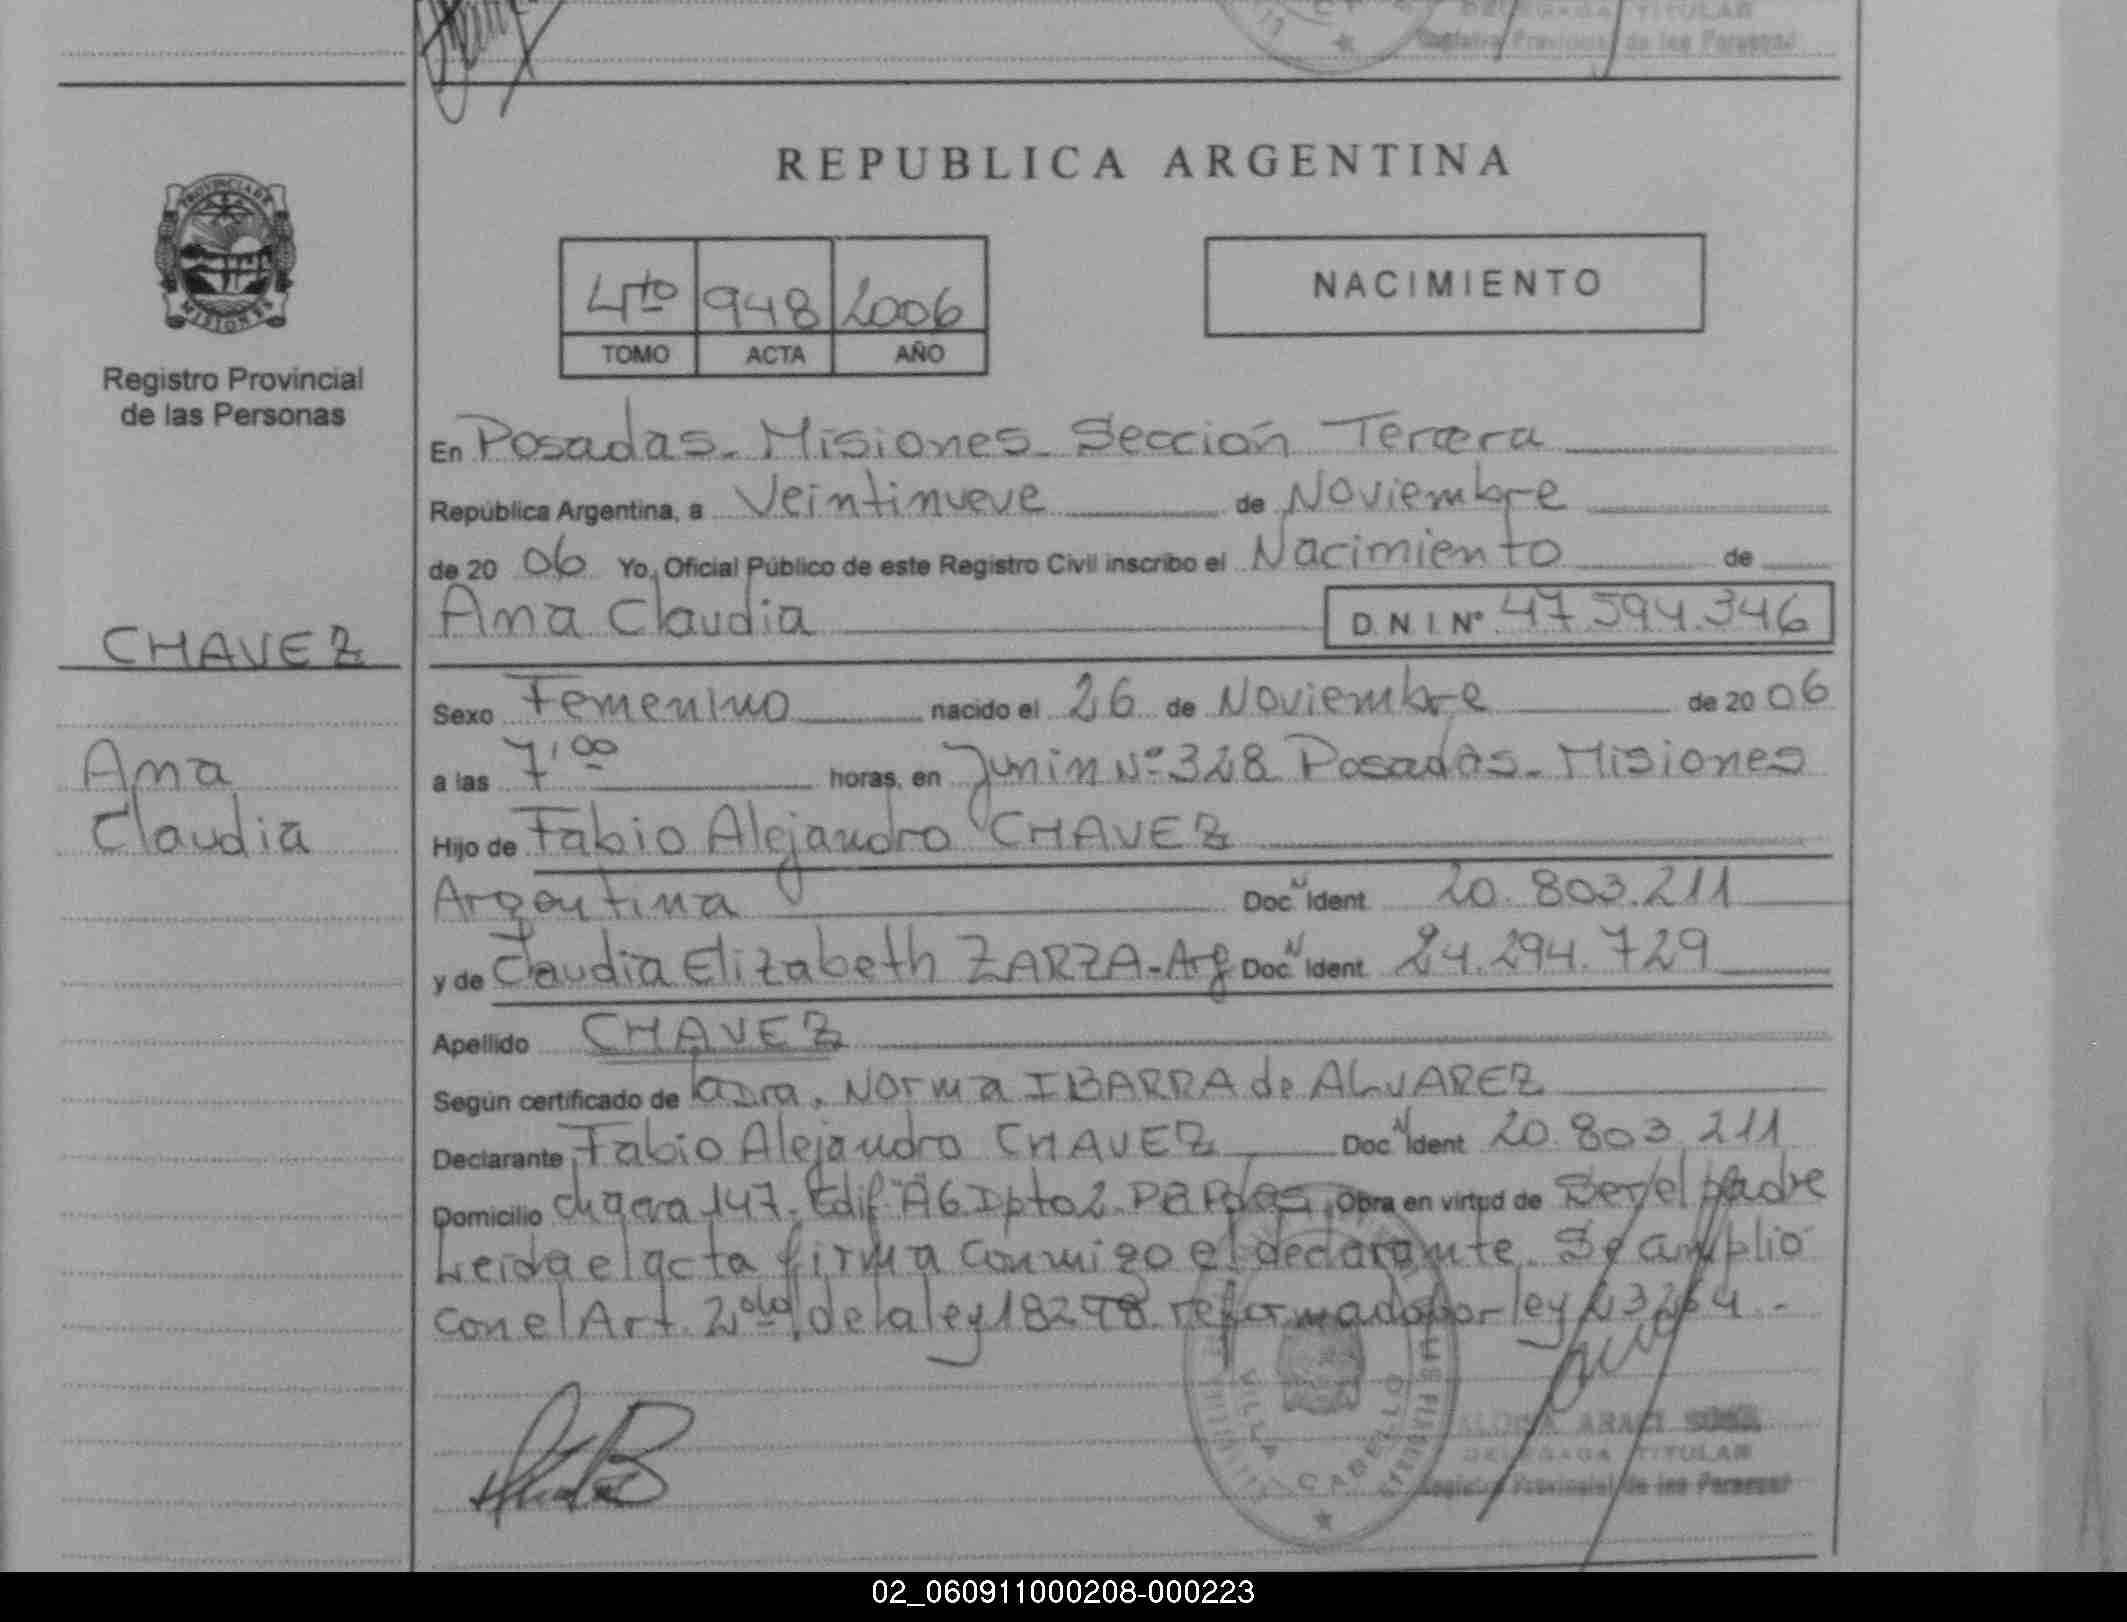 DELEGADA TITULAR
Registro Provincial de las Personas
REPUBLICA ARGENTINA
PROVINCIA DE
MISIONES
4to 948 2006
TOMO ACTA AÑO
NACIMIENTO
Registro Provincial
de las Personas
En Posadas - Misiones - Sección Tercera
República Argentina, a Veintinueve de Noviembre
de 20 06 Yo, Oficial Público de este Registro Civil inscribo el Nacimiento de
Ana Claudia D.N.I. Nº 47.594.346
CHAVEZ
Sexo Femenino nacido el 26 de Noviembre de 20 06
Ana
a las 7,00 horas, en Junin Nº 328 Posadas - Misiones
Claudia
Hijo de Fabio Alejandro CHAVEZ
Argentina Doc. N Ident 20.803.211
y de Claudia Elizabeth ZARZA - Arg Doc. N Ident 24.294.729
Apellido CHAVEZ
Según certificado de la Dra. Norma IBARRA de ALVAREZ
Declarante Fabio Alejandro CHAVEZ Doc N Ident 20.803.211
Domicilio chacra 147. Edif. A6 Dpto 2. Obra en virtud de Ser el padre
Leida el acta firma conmigo el declarante. Se amplio
con el Art. 2do de la ley 18248 reformado por ley 23264.-
VILLA CABELLO
DELEGADA TITULAR
Registro Provincial de las Personas
02_060911000208-000223